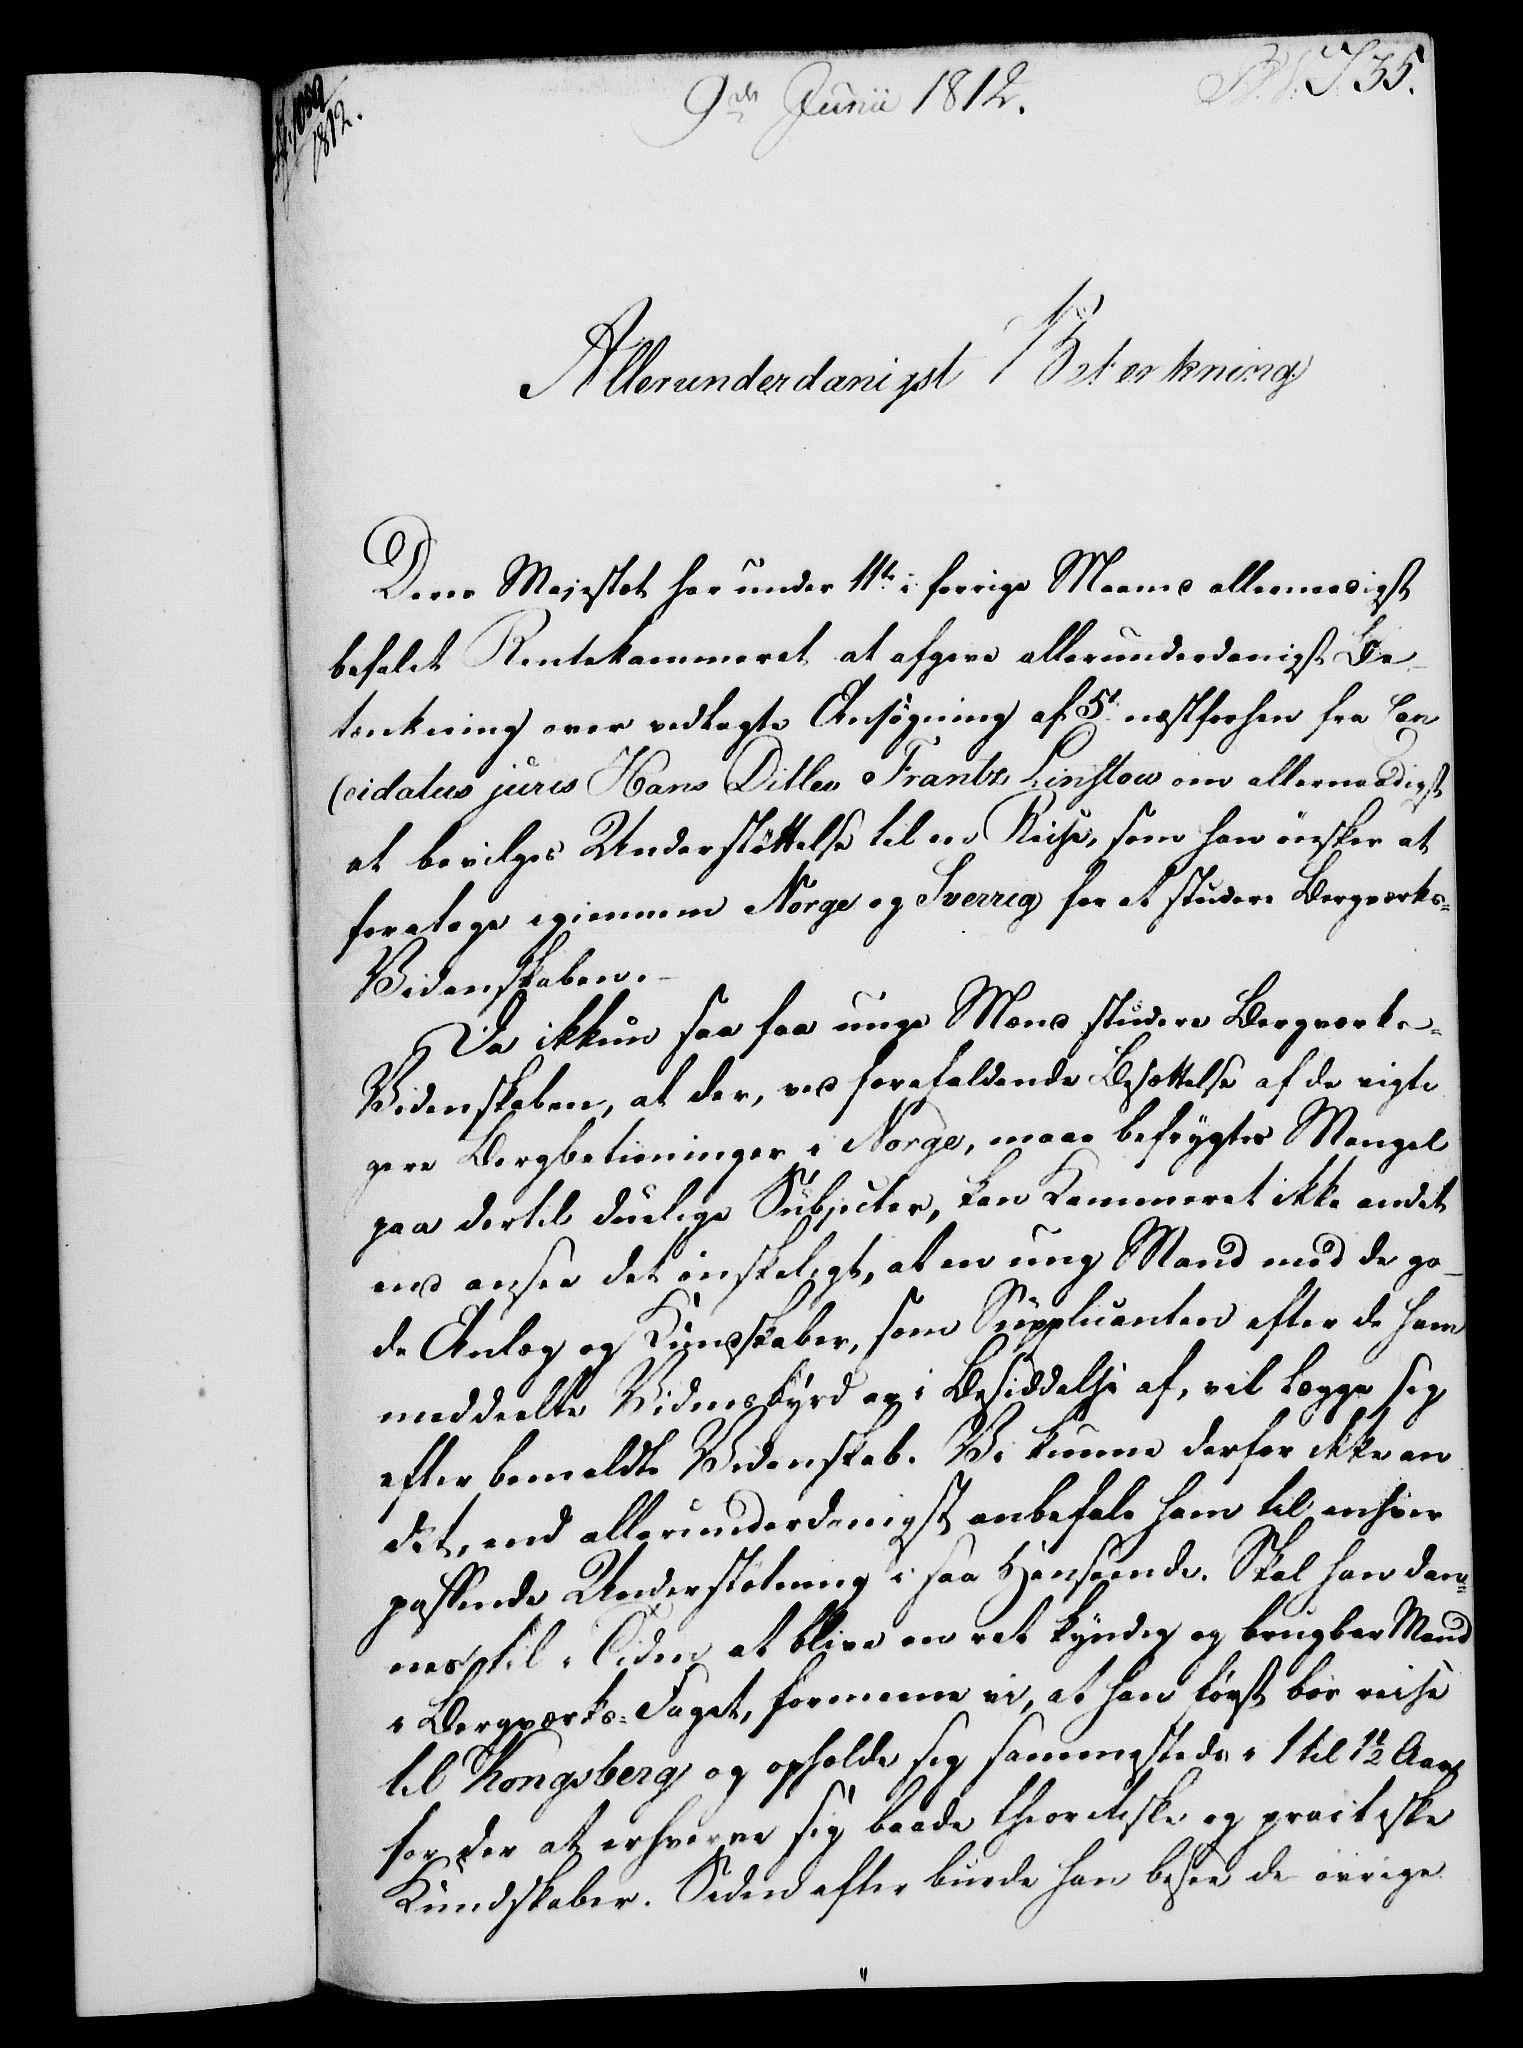 9de Junii 1812.
B. V. J 35.
1812.
Allerunderdanigst Betænkning
Deres Majestæt har under 11te i forrige Maaned allernaadigst
befalet Rentekammeret at afgive allerunderdanigst Be-
tænkning over vedlagte Ansøgning af 5te næstforhen fra Can
(cidatus juris Hans Ditlev Frantz Linstow om allernaadigst
at bevilges Understøttelse til en Reise, som han ønsker at
foretage igiennem Norge og Sverrig for at studere Bergværks-
Videnskaben.-
Da ikkun saa faa unge Mænd studere Bergværks-
Videnskaben, at der, ved forefaldende Besættelse af de vigti
gere Bergbetieninger i Norge, maae befrygtes Mangel
paa dertil duelige Subjecter, kan Kammeret ikke andet
end ansee det ønskeligt, at en ung Mand med de go-
de Anlæg og Kundskaber, som Supplicanten efter de ham
meddeelte Vidnesbyrd er i Besiddelse af, vil lægge sig
efter bemeldte Videnskab. Vi kunne derfor ikke an
det, end allerunderdanigst anbefale ham til enhver
passende Understøtning i saa Henseende. Skal han dan-
nes til i Tiden at blive en ret kyndig og brugbar Mand
i Bergværks-Faget, formeene vi, at han først bør reise
til Kongsberg og opholde sig sammesteds i 1 til 1 1/2 Aar,
for der at erhverve sig baade theoretiske og practiske
Kundskaber. Siden efter burde han besee de øvrige